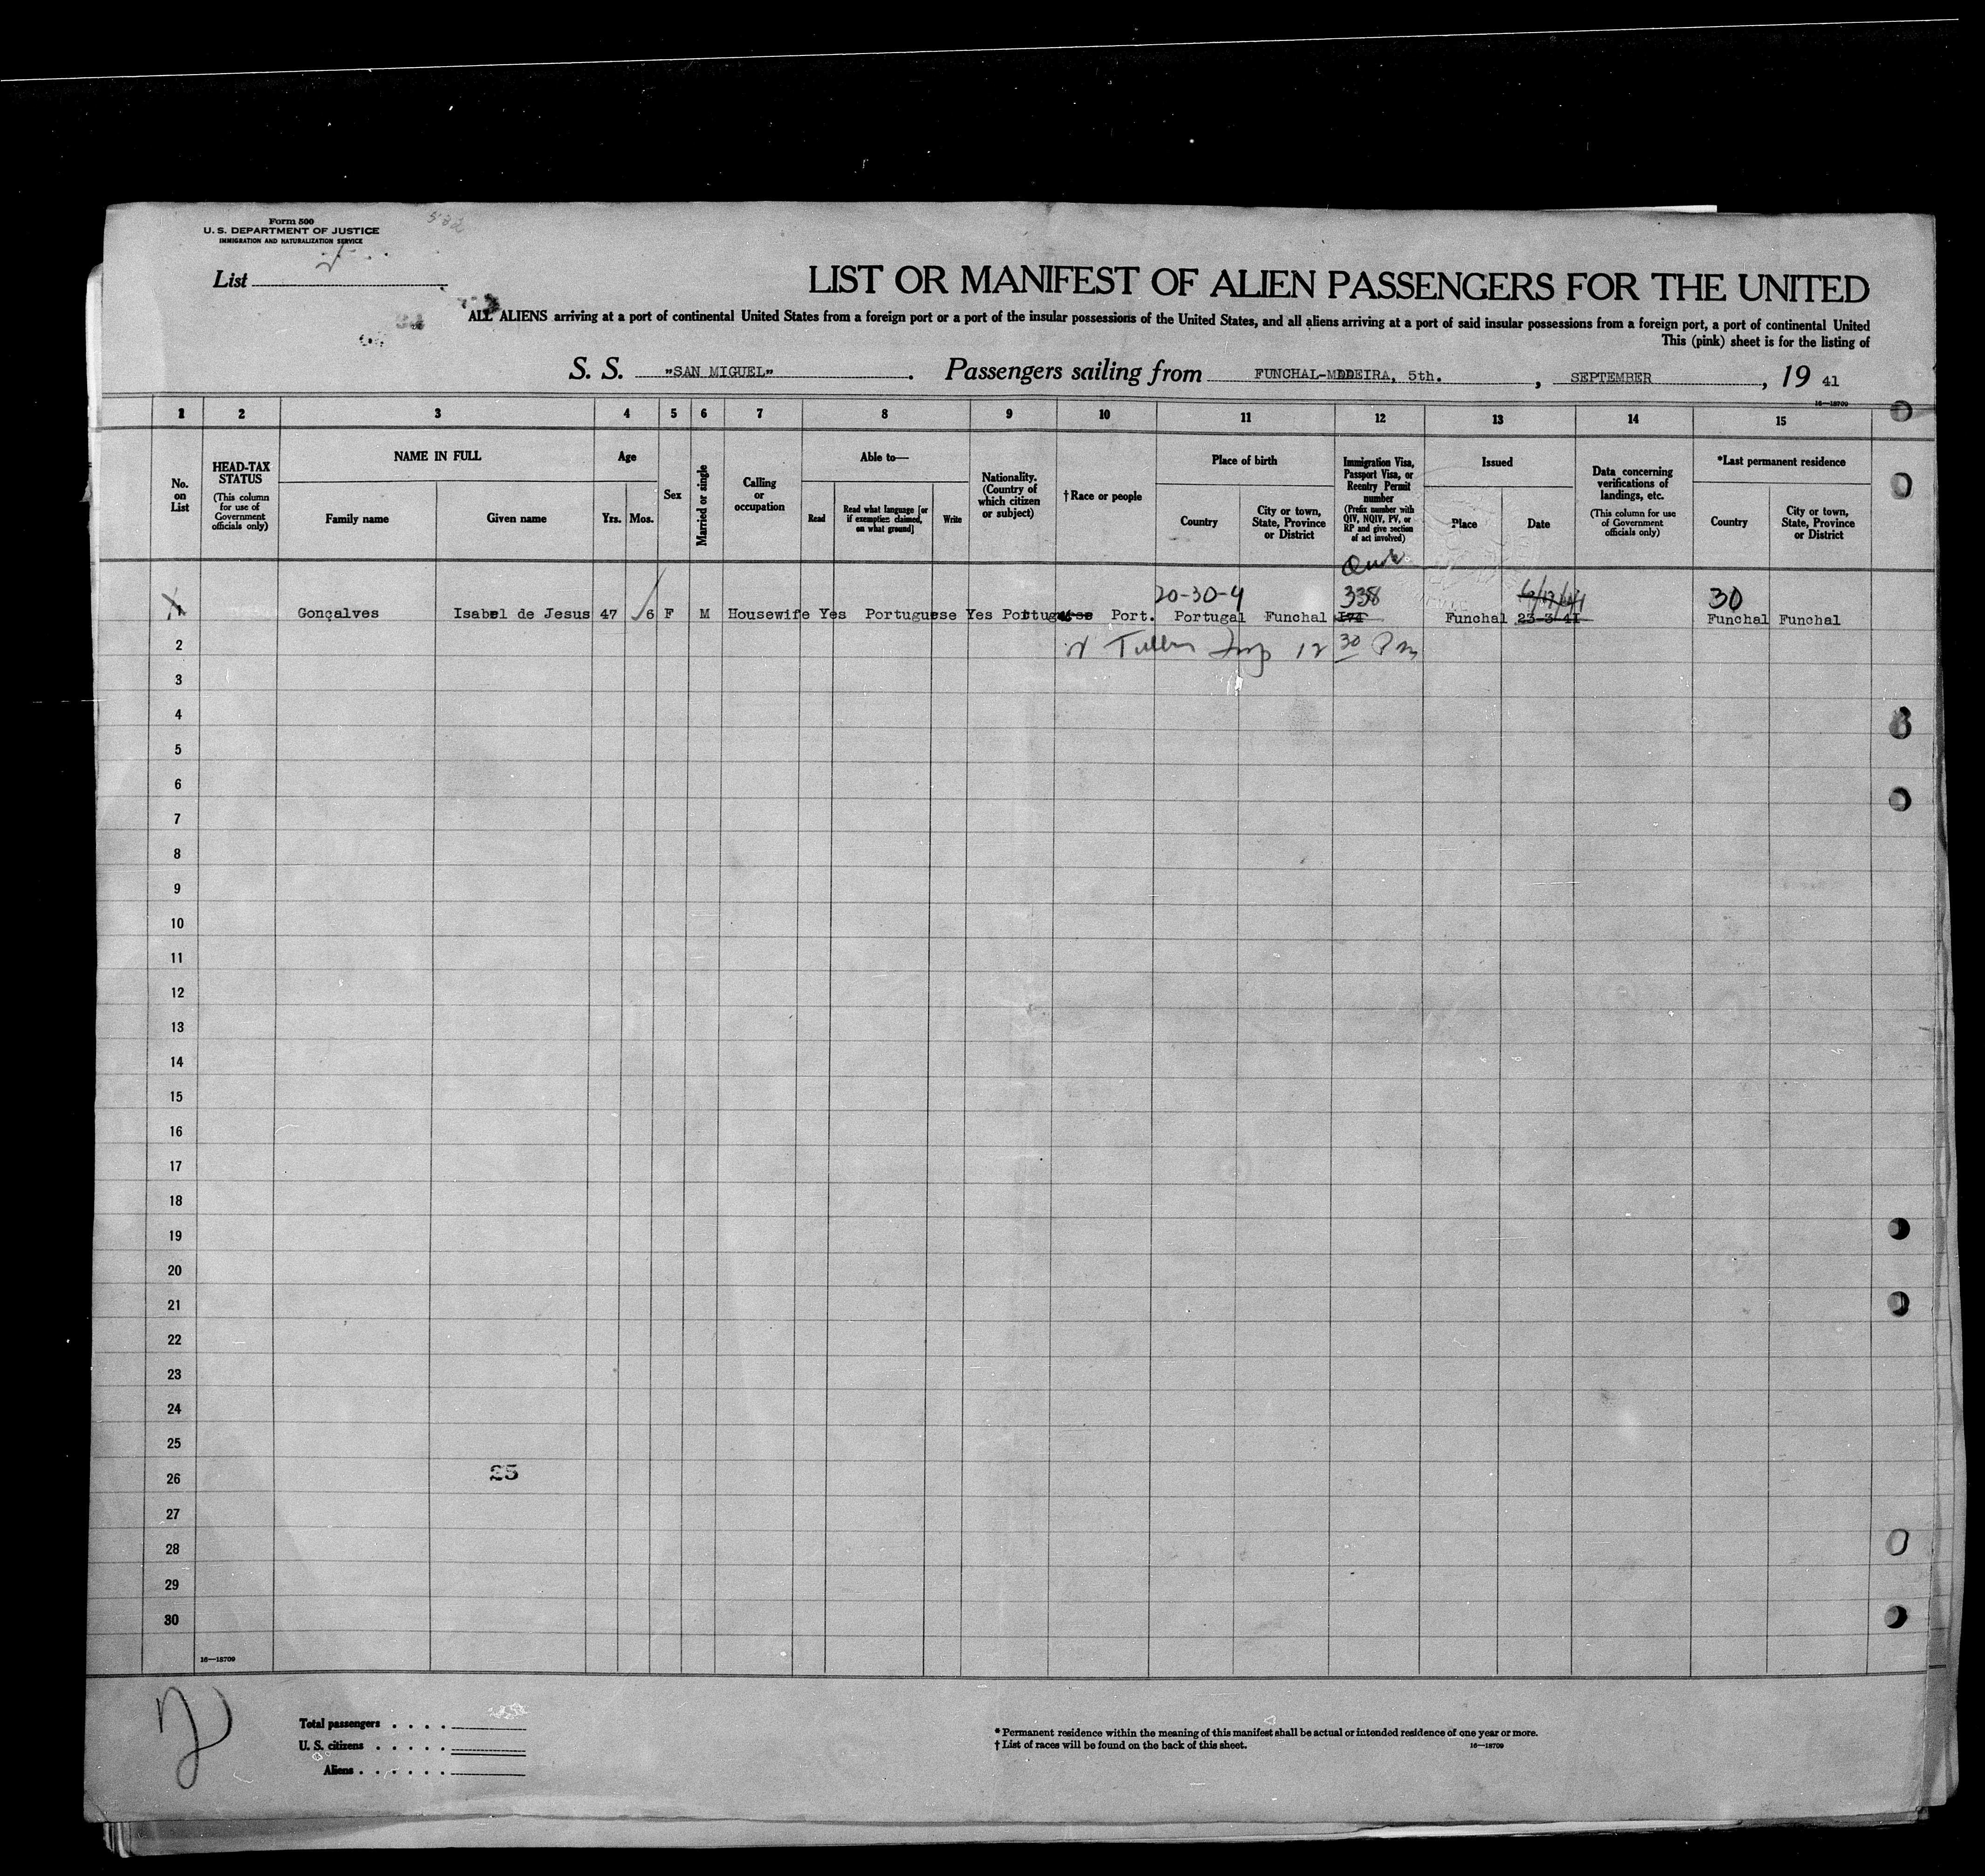 Form 500
U. S. DEPARTMENT OF JUSTICE
IMMIGRATION AND NATURALIZATION SERVICE
582
List 2
LIST OR MANIFEST OF ALIEN PASSENGERS FOR THE UNITED
ALL ALIENS arriving at a port of continental United States from a foreign port or a port of the insular possessions of the United States, and all aliens arriving at a port of said insular possessions from a foreign port, a port of continental United
This (pink) sheet is for the listing of
S. S. "SAN MIGUEL". Passengers sailing from FUNCHAL-MDDEIRA, 5th., SEPTEMBER, 19 41
16—18709
1 2 3 4 5 6 7 8 9 10 11 12 13 14 15
No. on List
HEAD-TAX STATUS
(This column for use of Government officials only)
NAME IN FULL
Family name
Given name
Age
Yrs.
Mos.
Sex
Married or single
Calling or occupation
Able to—
Read
Read what language [or if exemption claimed, on what ground]
Write
Nationality. (Country of which citizen or subject)
†Race or people
Place of birth
Country
City or town, State, Province or District
Immigration Visa, Passport Visa, or Reentry Permit number
(Prefix number with QIV, NQIV, PV, or RP and give section of act involved)
Issued
Place
Date
Data concerning verifications of landings, etc.
(This column for use of Government officials only)
*Last permanent residence
Country
City or town, State, Province or District
20-30-4 338 30
1 Gonçalves Isabel de Jesus 47 6 F M Housewife Yes Portuguese Yes Portuguese Port. Portugal Funchal 174 Funchal 23-3-41 Funchal Funchal
12 30 Pm
2
3
4
5
6
7
8
9
10
11
12
13
14
15
16
17
18
19
20
21
22
23
24
25
26 25
27
28
29
30
16—18709
Total passengers . . . .
U. S. citizens . . . . .
Aliens . . . . . .
* Permanent residence within the meaning of this manifest shall be actual or intended residence of one year or more.
† List of races will be found on the back of this sheet.
16—18709